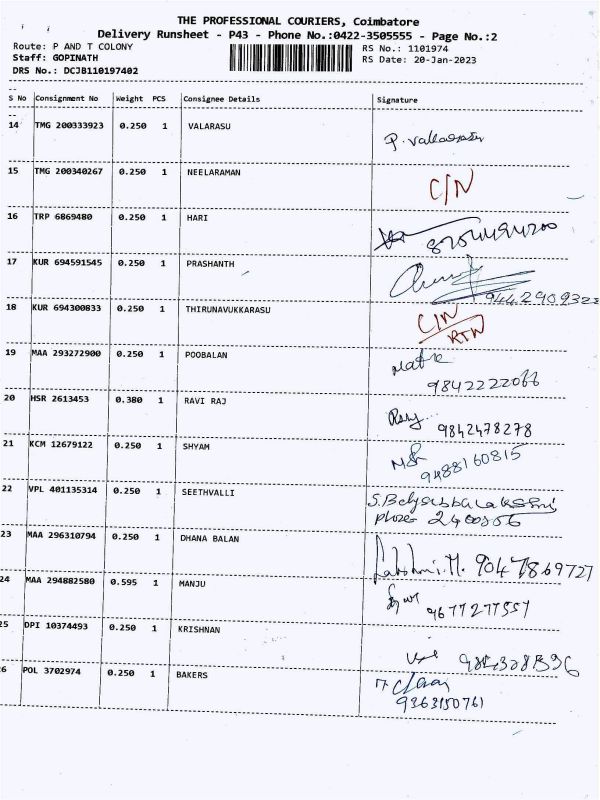 THE PROFESSIONAL COURIERS, Coimbatore
Delivery Runsheet - P43 - Phone No.:0422-3505555 - Page No.:2
Route: P AND T COLONY RS No.: 1101974
Staff: GOPINATH RS Date: 20-Jan-2023
DRS No.: DCJB110197402
S No Consignment No Weight PCS Consignee Details Signature
14 TMG 200333923 0.250 1 VALARASU
P. Vallarasu
15 TMG 200340267 0.250 1 NEELARAMAN
C/N
16 TRP 6869480 0.250 1 HARI
17 KUR 694591545 0.250 1 PRASHANTH
9442909322
18 KUR 694300833 0.250 1 THIRUNAVUKKARASU
C/N
RTN
19 MAA 293272900 0.250 1 POOBALAN
9842222066
20 HSR 2613453 0.380 1 RAVI RAJ
9842478278
21 KCM 12679122 0.250 1 SHYAM
9488160815
22 VPL 401135314 0.250 1 SEETHVALLI
23 MAA 296310794 0.250 1 DHANA BALAN
Lakshmi.M. 9047869727
24 MAA 294882580 0.595 1 MANJU
9677277557
25 DPI 10374493 0.250 1 KRISHNAN
26 POL 3702974 0.250 1 BAKERS
9363150761